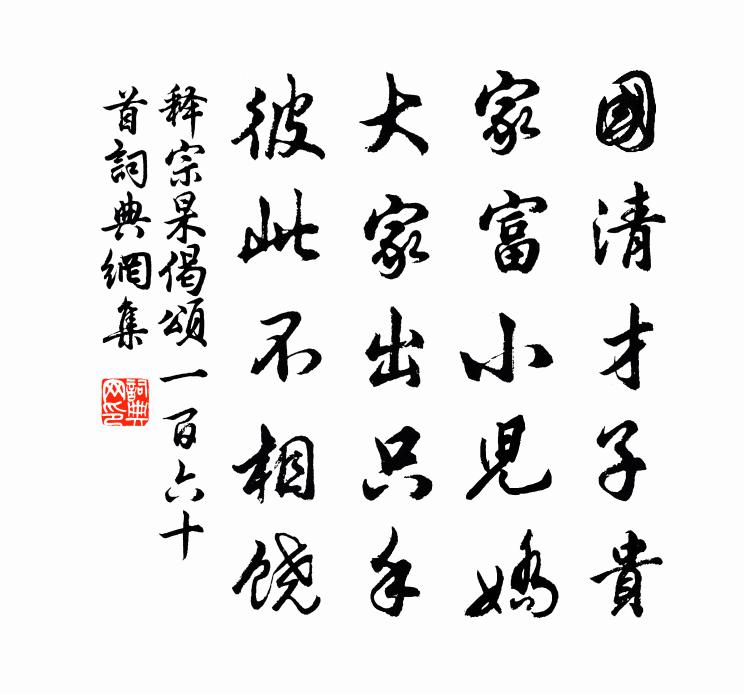 國清才子貴
家富小兒嬌
大家出只手
彼此不相饶
释宗杲偈頌一百六十
首詞典網集
詞典网印